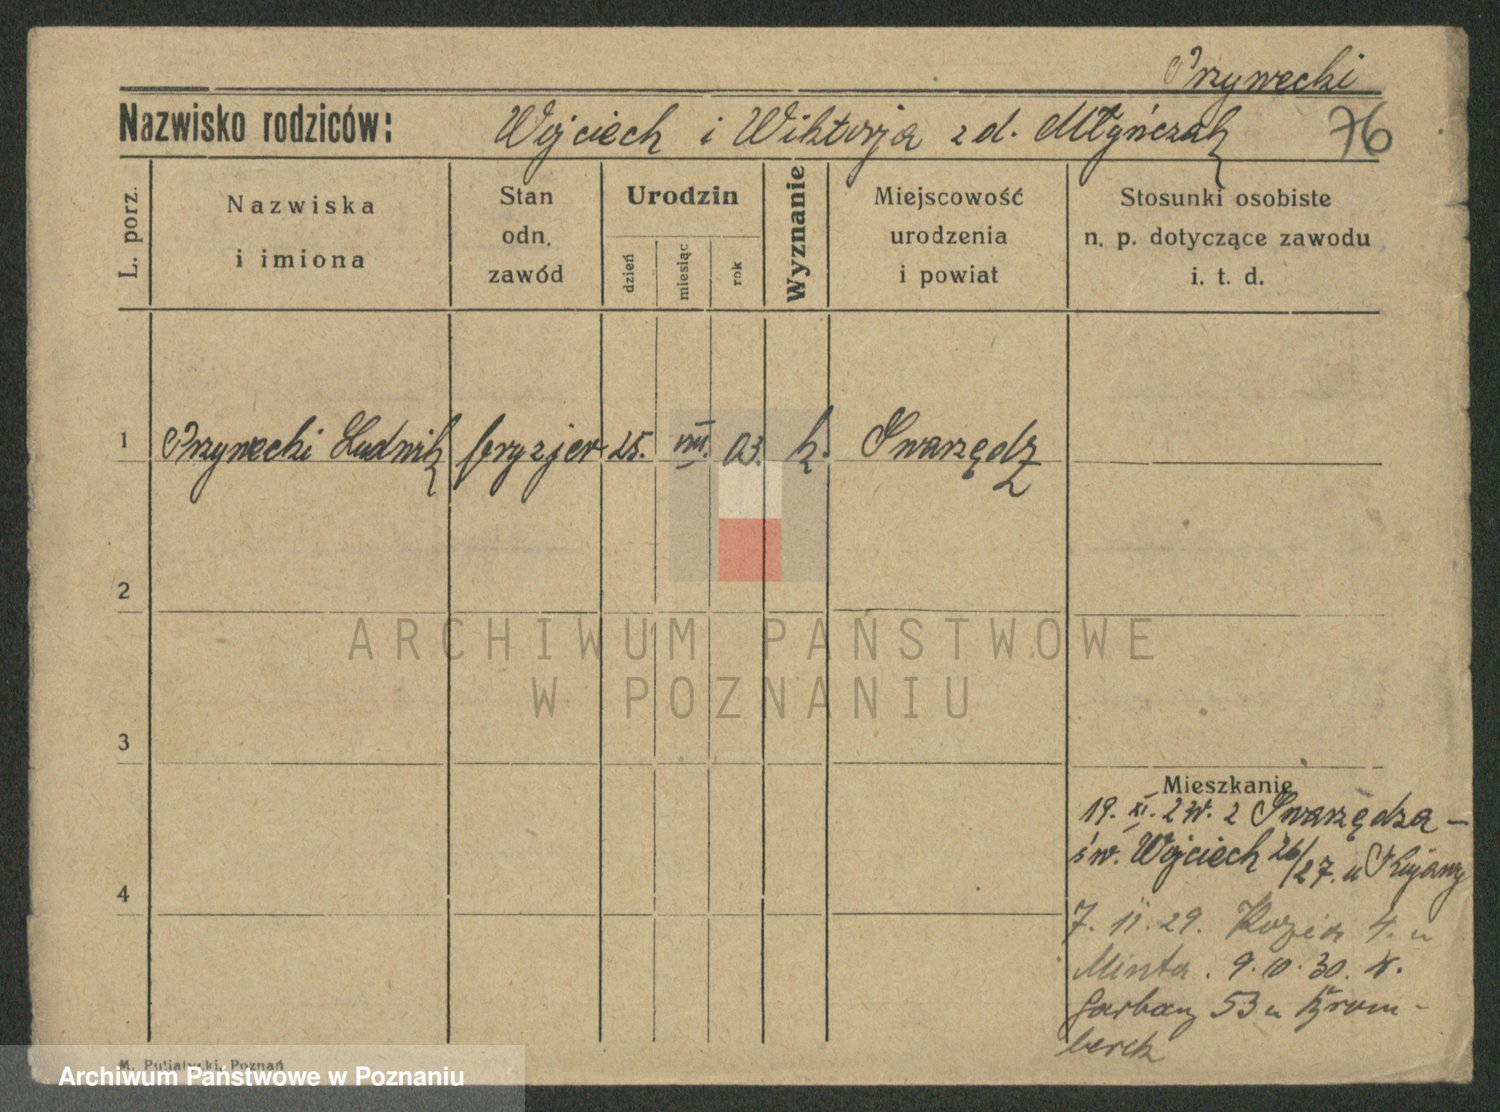 Przywecki
Nazwisko rodziców: Wojciech i Wiktorja z d. Młyńczak 76
L. porz.
Nazwiska
i imiona
Stan
odn.
zawód
Urodzin
dzień
miesiąc
rok
Wyznanie
Miejscowość
urodzenia
i powiat
Stosunki osobiste
n. p. dotyczące zawodu
i. t. d.
1 Przywecki Ludwik fryzjer 25. VIII. 03. k. Swarzędz
2
ARCHIWUM PAŃSTWOWE
W POZNANIU
3
Mieszkanie
19. XI. 2 Swarzędza –
św. Wojciech 26/27. u
4
7. 11. 29. 4. u
Minta. 9. 10. 30.
Garbary 53 u Krom-
berek
M. Putiatycki, Poznań
Archiwum Państwowe w Poznaniu